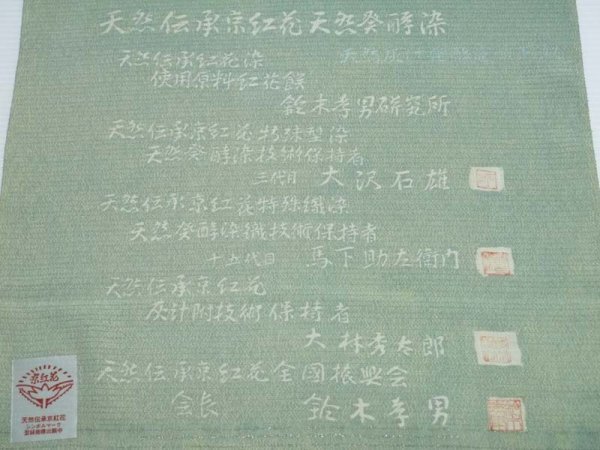 天然伝承京紅花天然発酵染
天然伝承紅花染
使用原料紅花餅
鈴木孝男研究所
天然伝承京紅花特殊型染
天然発酵染技術保持者
三代目 大沢石雄
天然伝承京紅花特殊織染
天然発酵染織技術保持者
十五代目 馬下助左衛門
天然伝承京紅花
灰汁附技術保持者
大林秀太郎
天然伝承京紅花全國振興会
会長 鈴木孝男
京紅花
天然伝承京紅花
シンボルマーク
登録商標出願中